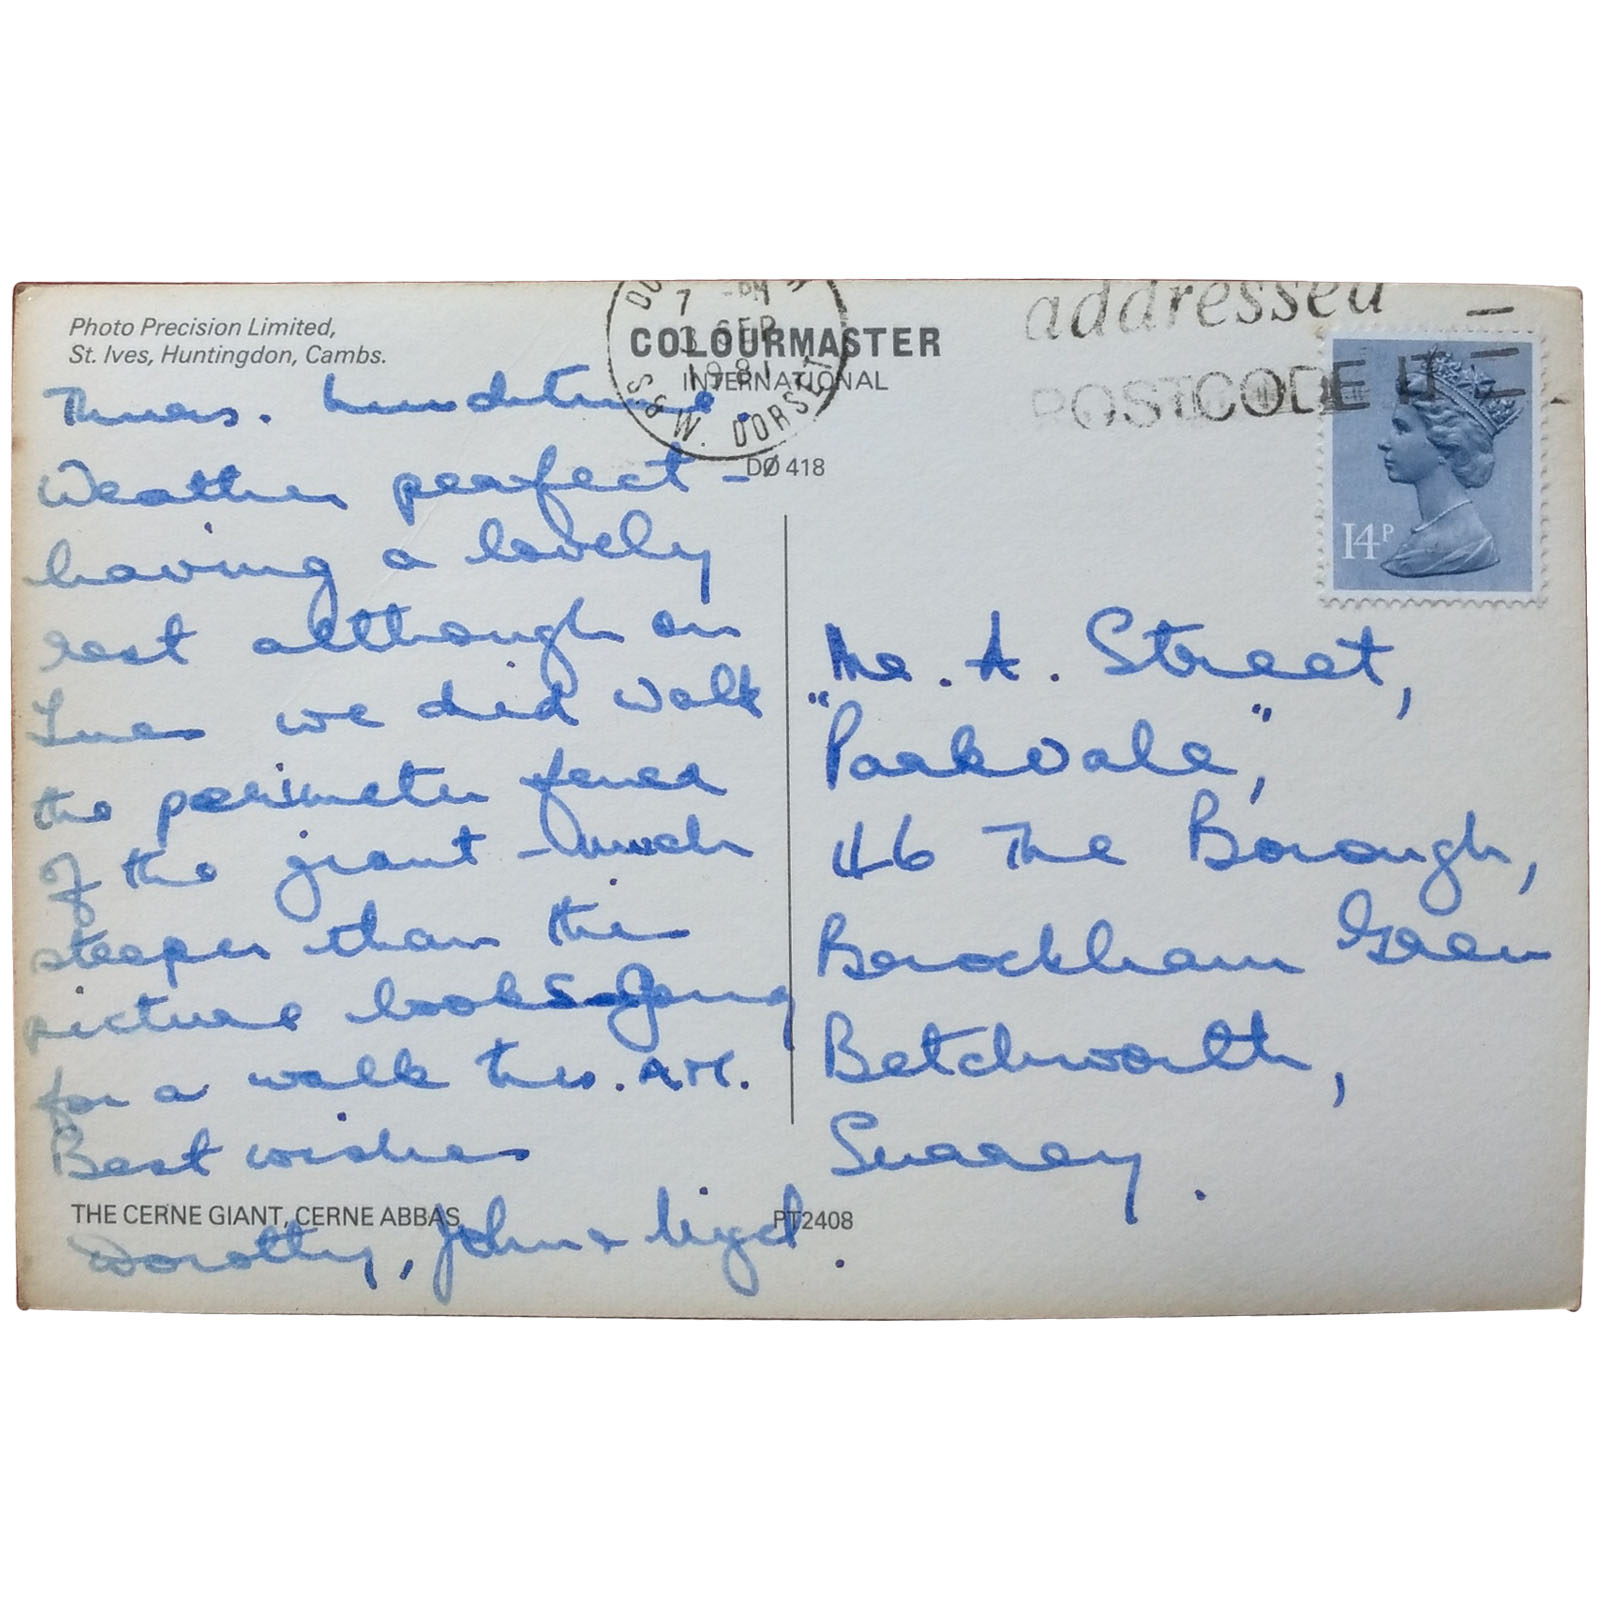 Photo Precision Limited,
St. Ives, Huntingdon, Cambs.
COLOURMASTER
INTERNATIONAL
DØ 418
7 -PM
3 SEP
1981
S & W. DORSET
addressed
POSTCODE IT
14P
Thurs. Lunchtime.
Weather perfect -
having a lovely
rest although on
Tues we did walk
the perimeter fence
of the giant - much
steeper than the
picture looks. Going
for a walk this. AM.
Best wishes
Dorothy, John & Nigel.
THE CERNE GIANT, CERNE ABBAS
PT2408
Mr. A. Street,
"Parkvale",
46 The Borough,
Brockham Green
Betchworth,
Surrey.